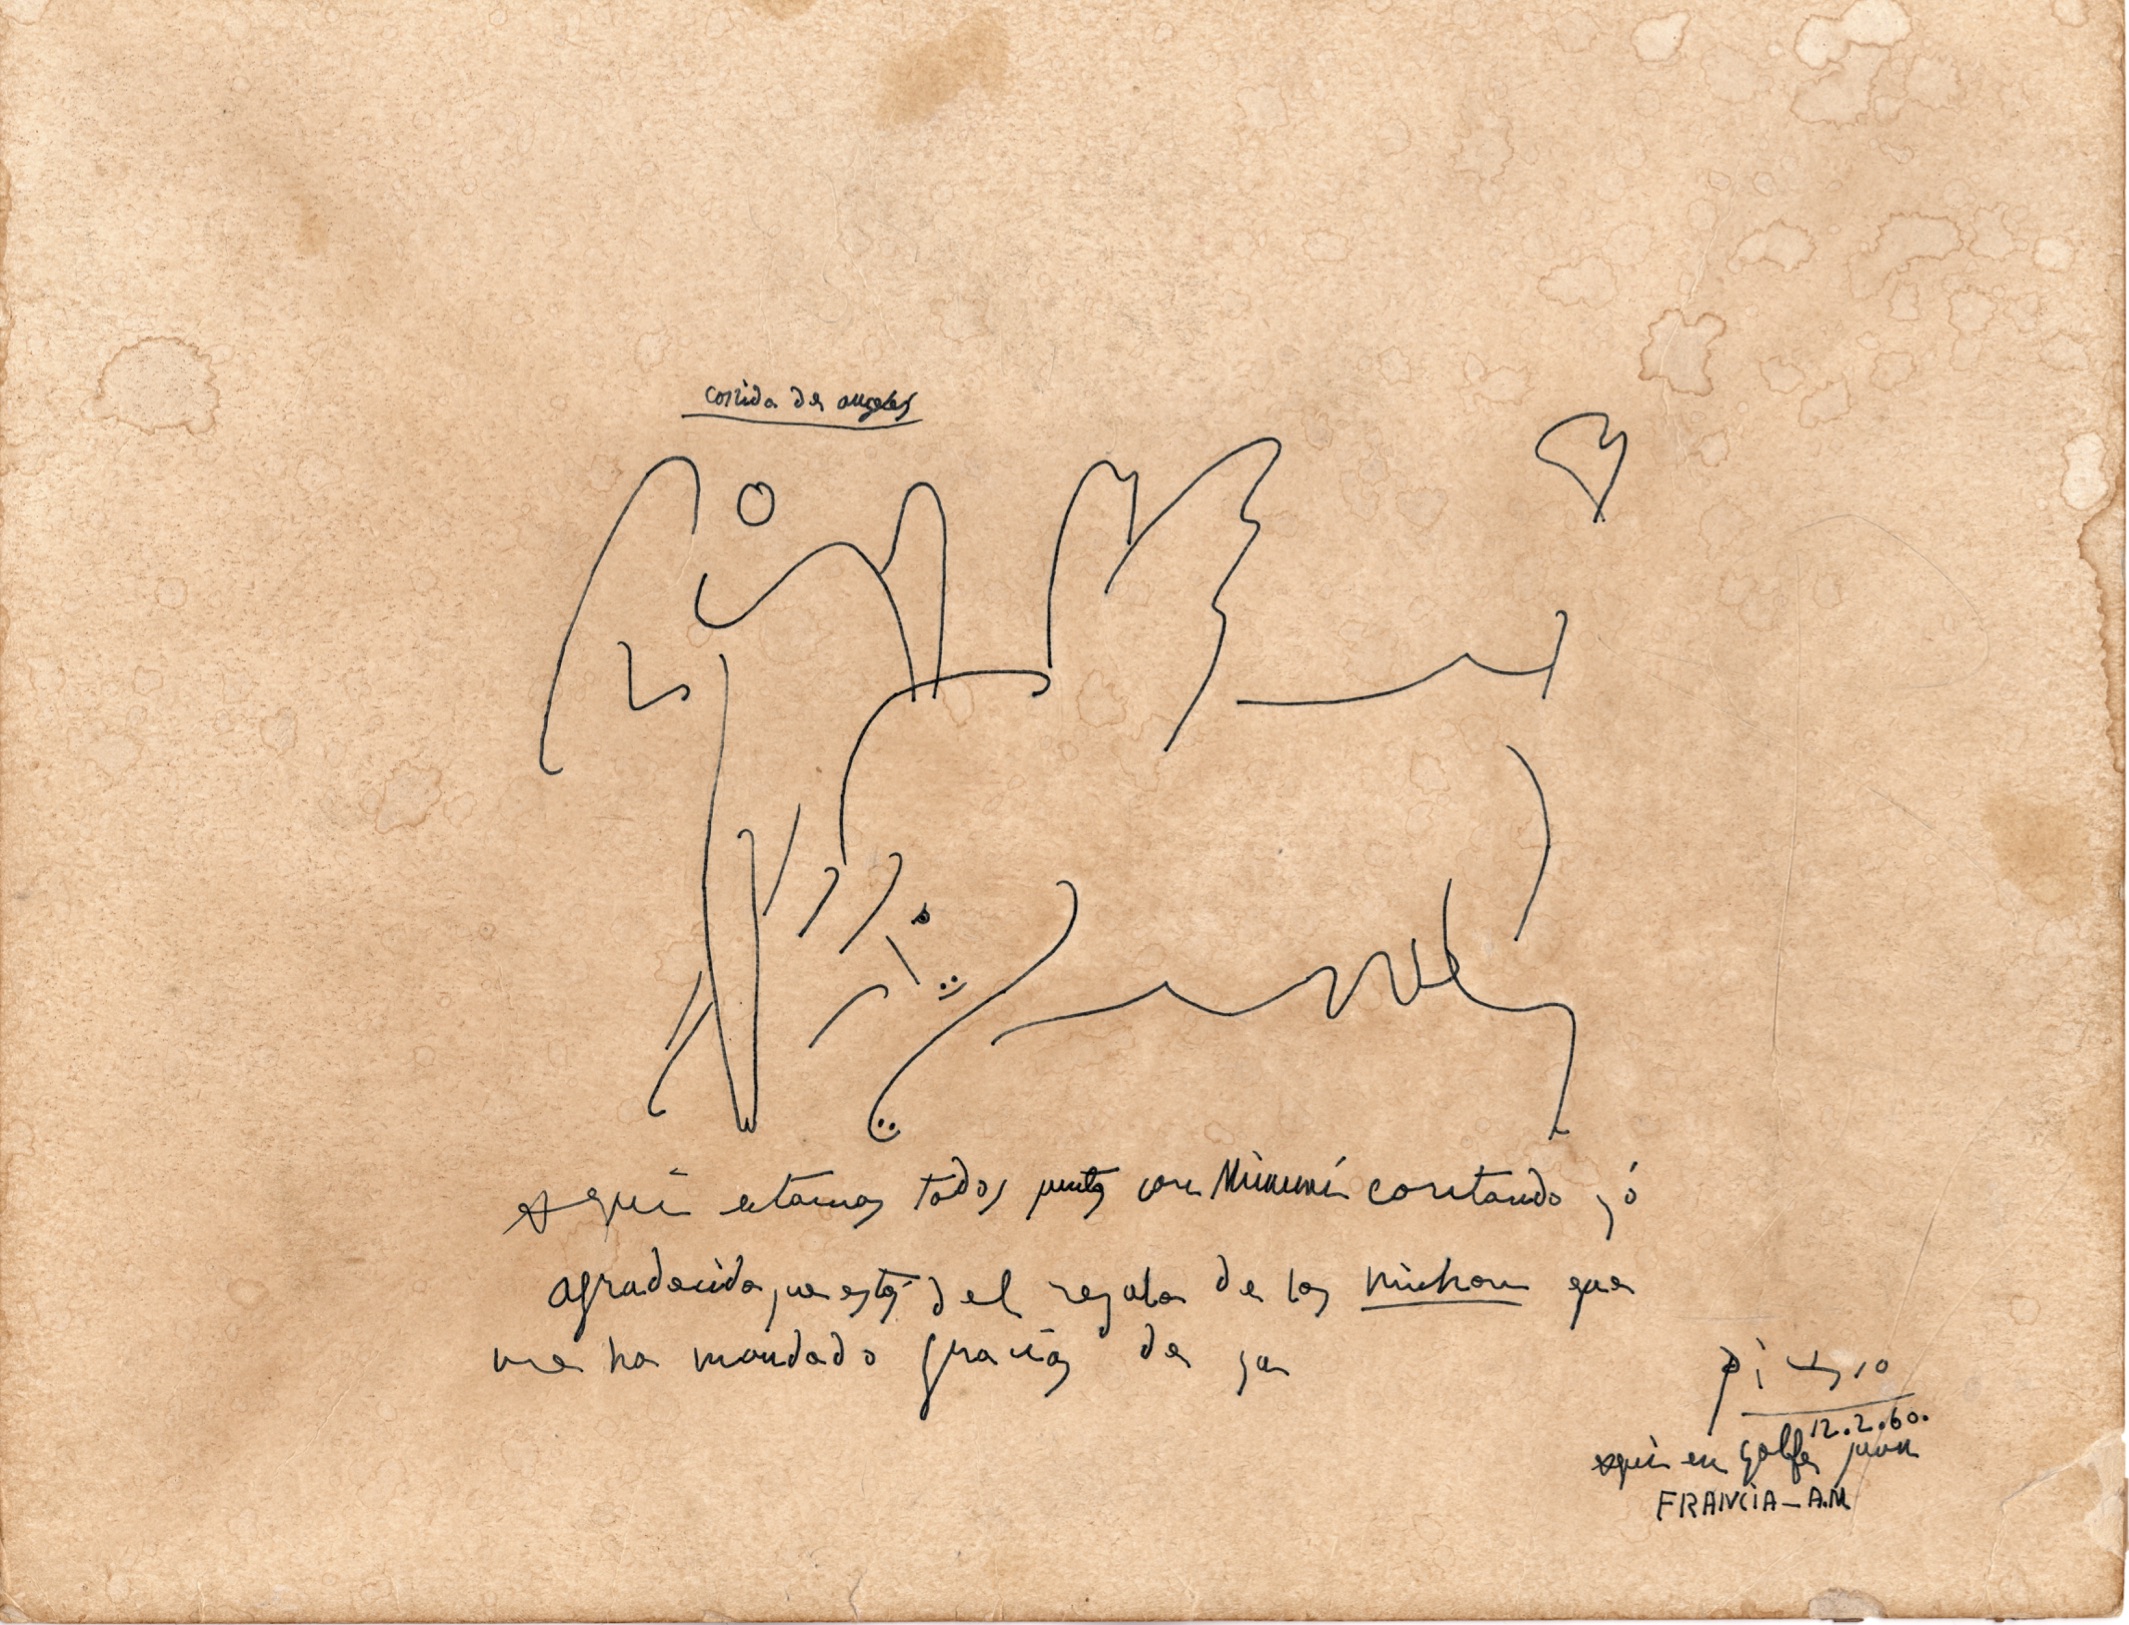 corrida de angeles
aqui estamos todos juntos con contando yó
agradecido del regalo de los que
me ha mandado gracias de
Picasso
12.2.60.
aqui en golfe juan
FRANCIA - A.M.